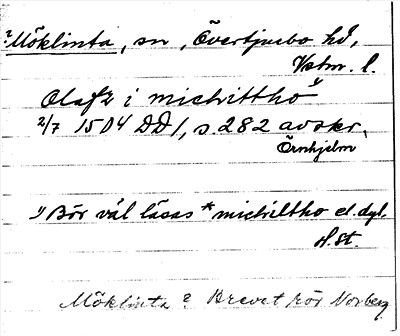 ? Möklinta, sn, Övertjurbo hd,
Vstm. l.
Olafz i michrittho 1)
2/7 1504 DD 1, s. 282 avskr.
Örnhjelm
1) Bör väl läsas *michiltho el. dyl.
H. St.
Möklinta? Brevet rör Norberg